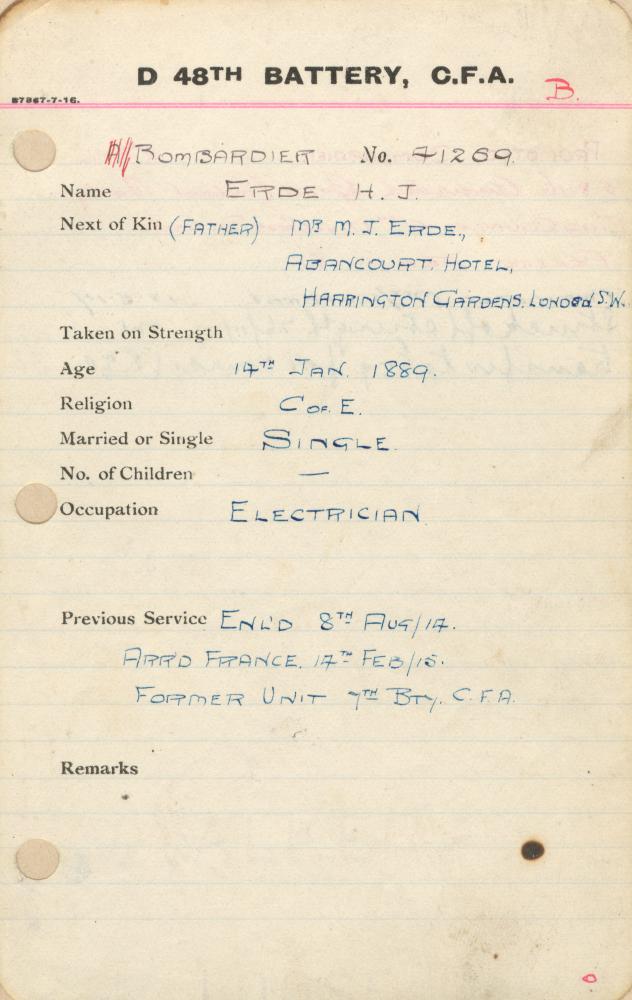 D 48TH BATTERY, C.F.A. B.
87867-7-16.
A/BOMBARDIER No. 41269.
Name ERDE H. J.
Next of Kin (FATHER) MR M. J. ERDE.,
ABANCOURT. HOTEL,
HARRINGTON GARDENS. LONDON S.W.
Taken on Strength
Age 14TH JAN. 1889.
Religion C OF E.
Married or Single SINGLE
No. of Children —
Occupation ELECTRICIAN
Previous Service ENL'D 8TH AUG/14.
ARR'D FRANCE. 14TH FEB/15.
FORMER UNIT 7TH BTY. C.F.A.
Remarks